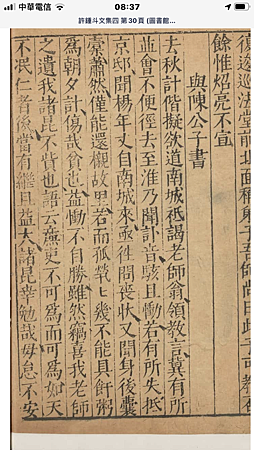 中華電信 08:37
許鍾斗文集四 第 30 頁 (圖書館...
復逡巡法堂前北面稱弟子吾師尚曰此子可教
餘惟炤亮不宣
與陳公子書
去秋計偕擬欲道南城祗謁老師翁領教言冀有所
並會不便徑去至淮乃聞訃音駭且慟若有所失抵
京邸聞楊年丈自南城來亟往問喪狀又聞身後囊
橐蕭然僅能還櫬故里若而孤煢〻幾不能具飦粥
為朝夕計傷哉貧也益慟不自勝雖然竊喜我老師
之遺我諸昆不貲也語云廉吏不可為而可為如天
不泯仁者後當有繼且益大諸昆幸勉哉毋怠不安